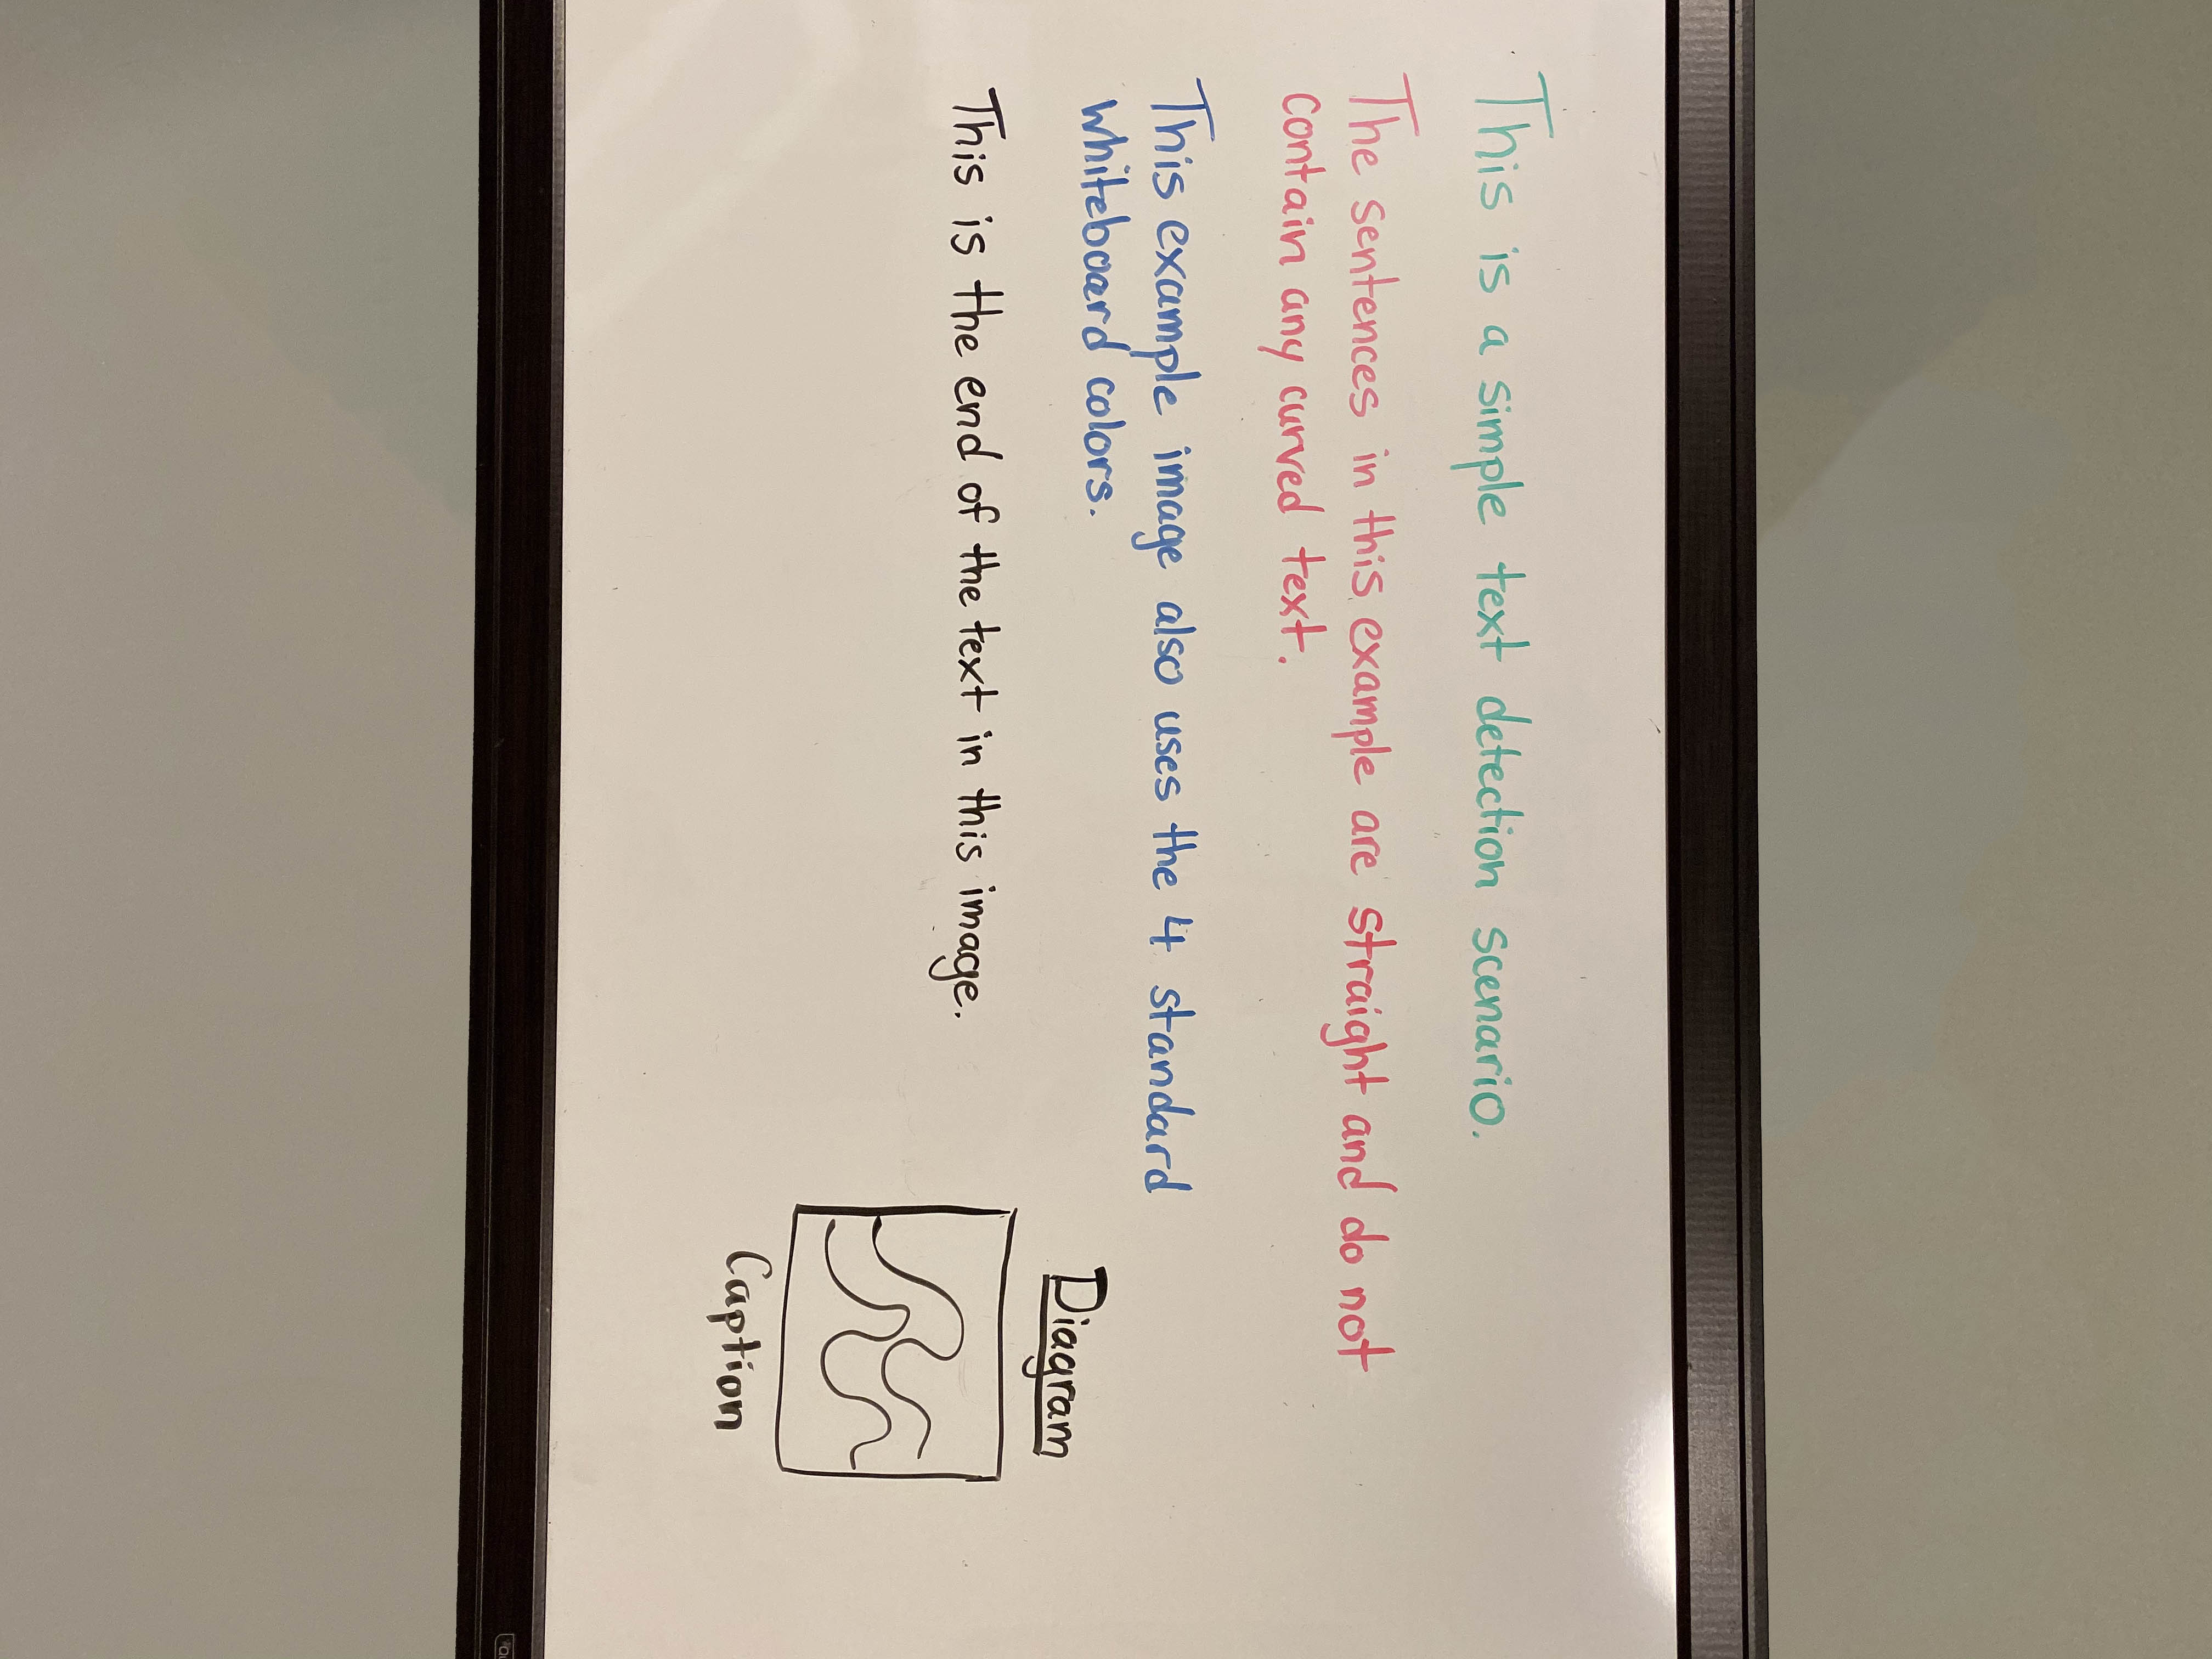 This is a simple text detection scenario.
The sentences in this example are straight and do not
contain any curved text.
This example image also uses the 4 standard
whiteboard colors.
This is the end of the text in this image.
Diagram
Caption